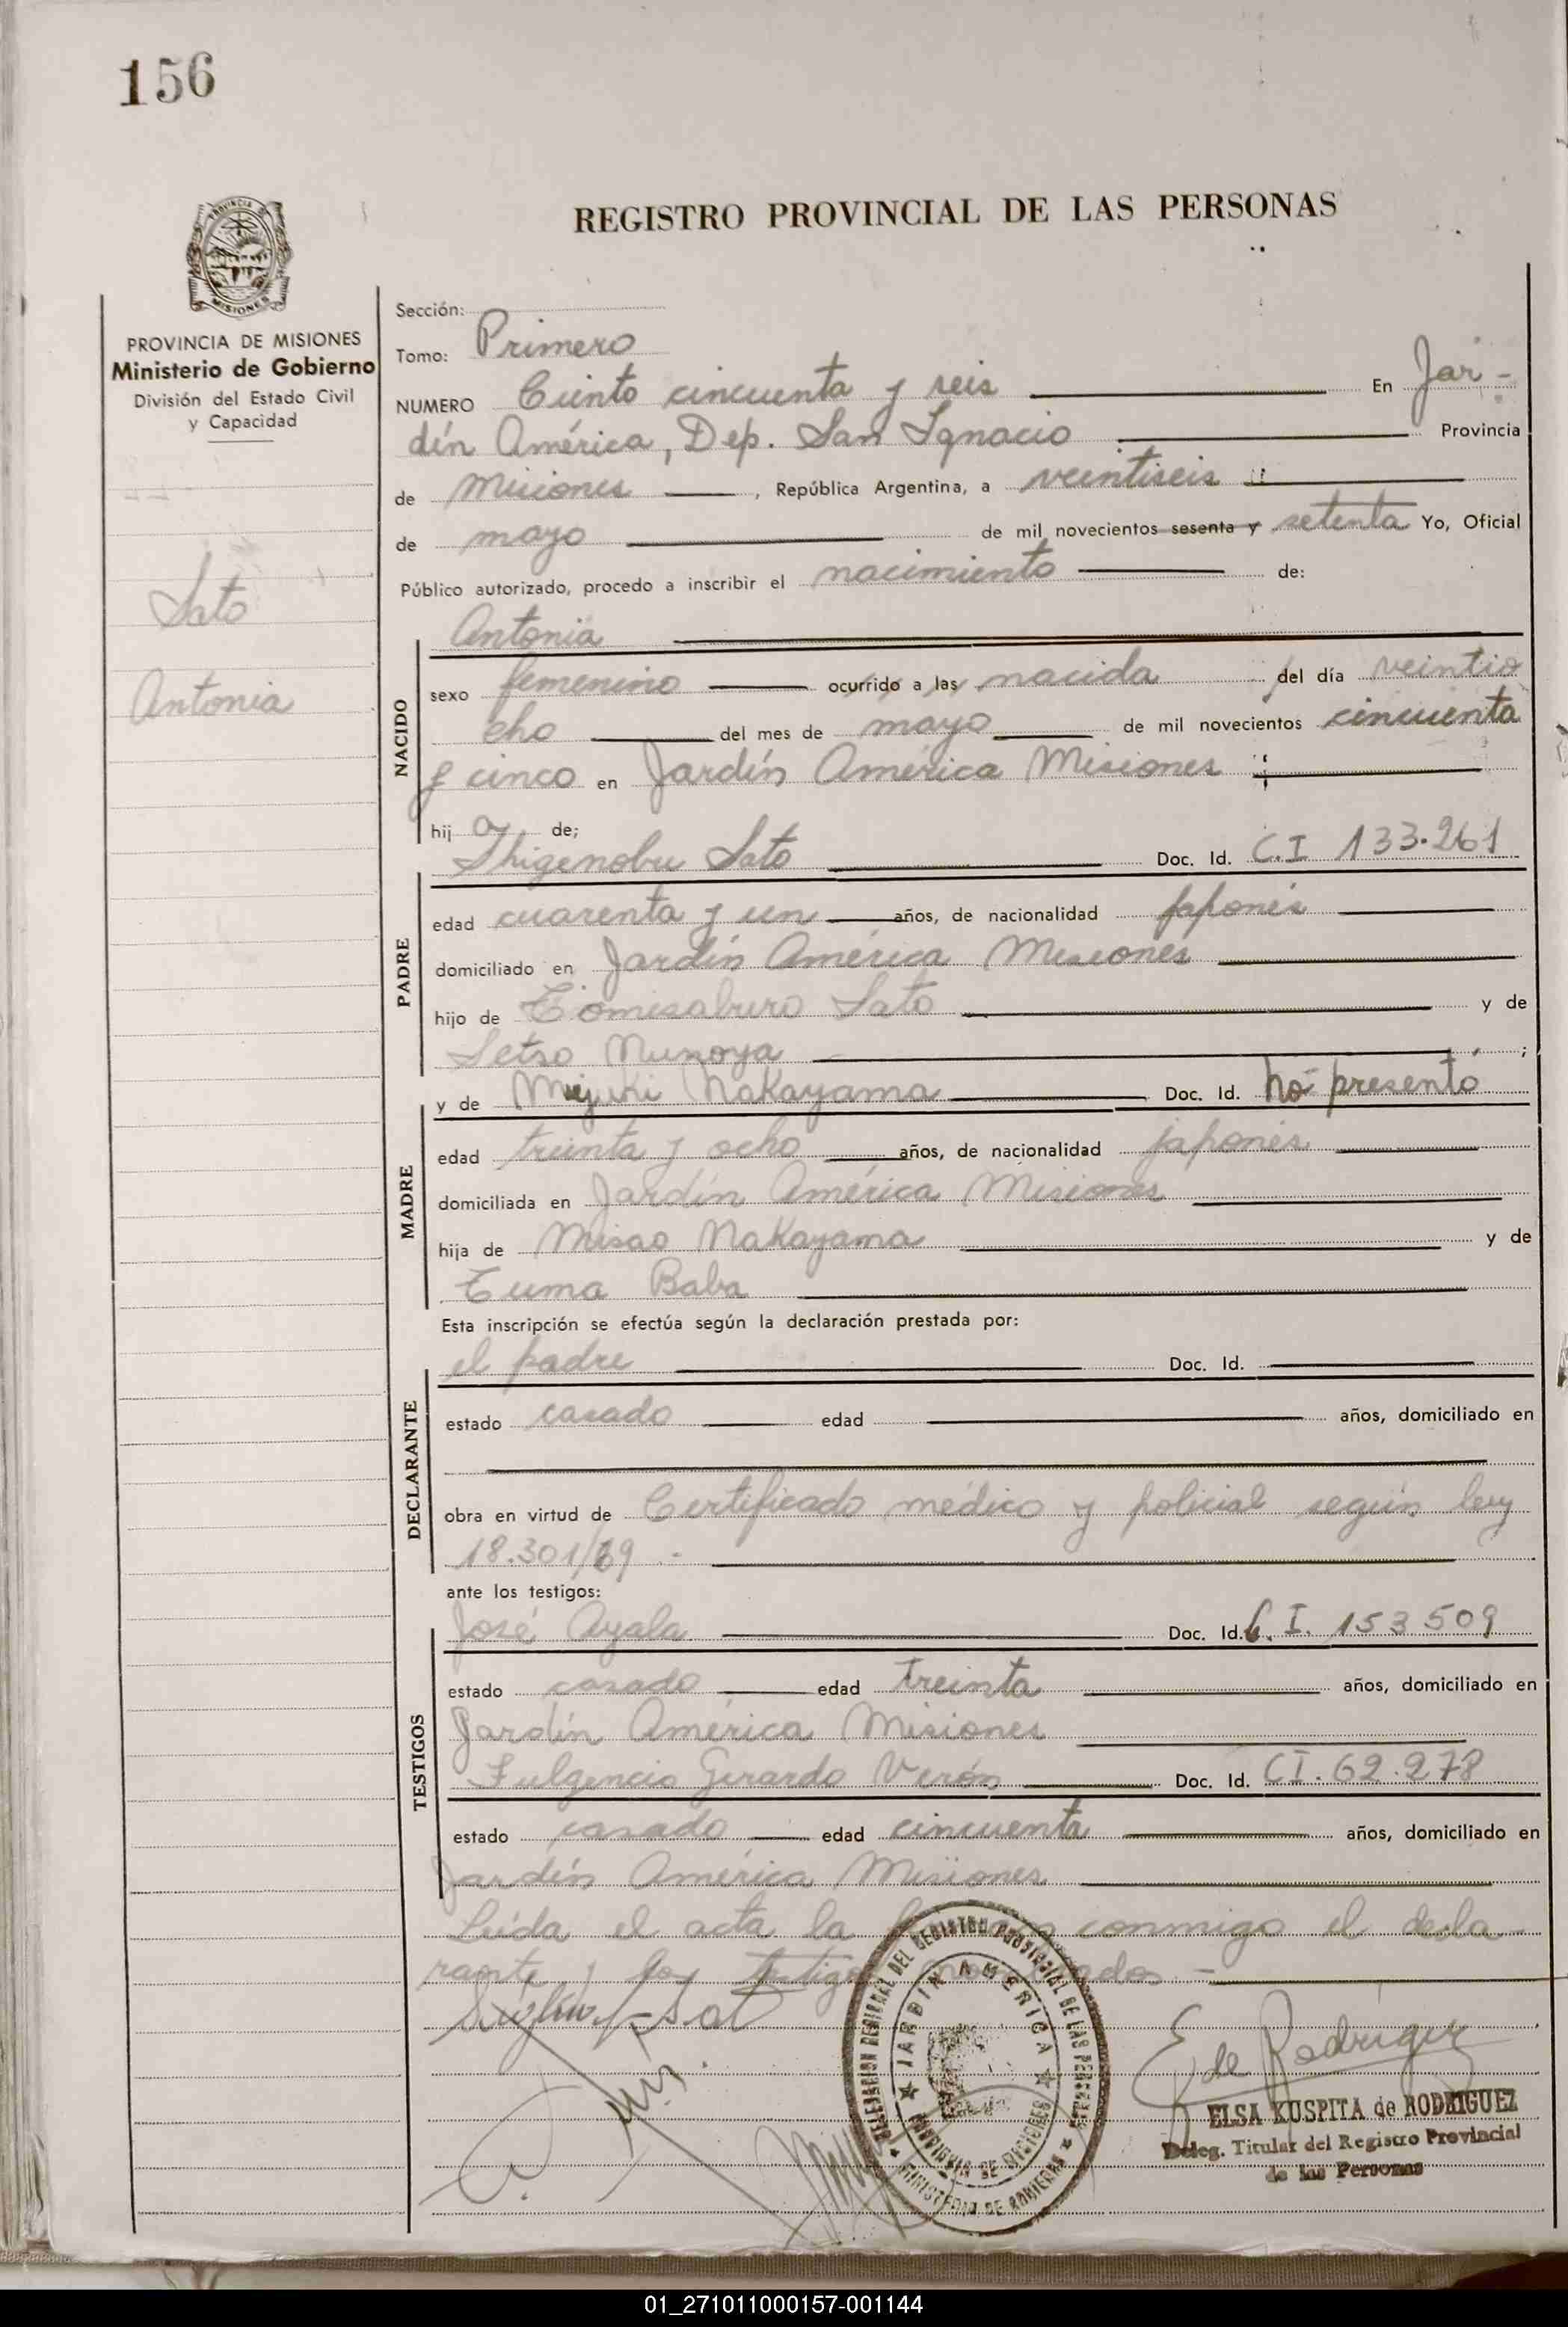 156
REGISTRO PROVINCIAL DE LAS PERSONAS
PROVINCIA
MISIONES
PROVINCIA DE MISIONES
Ministerio de Gobierno
División del Estado Civil
y Capacidad
Sato
Antonia
Sección:
Tomo: Primero
NUMERO Ciento cincuenta y seis En Jar-
dín América, Dep. San Ignacio Provincia
de Misiones, República Argentina, a veintiseis
de mayo de mil novecientos sesenta y setenta Yo, Oficial
Público autorizado, procedo a inscribir el nacimiento de:
NACIDO
Antonia
sexo femenino ocurrido a las nacida del día veintio
cho del mes de mayo de mil novecientos cincuenta
y cinco en Jardín América Misiones
hija de;
PADRE
Shigenobu Sato Doc. Id. C.I 133.261
edad cuarenta y un años, de nacionalidad japonés
domiciliado en Jardín América Misiones
hijo de Tomisaburo Sato y de
Setso Nunoya;
MADRE
y de Mizuki Nakayama Doc. Id. no presentó
edad treinta y ocho años, de nacionalidad japonés
domiciliada en Jardín América Misiones
hija de Misao Nakayama y de
Tuma Baba
Esta inscripción se efectúa según la declaración prestada por:
DECLARANTE
el padre Doc. Id.
estado casado edad años, domiciliado en
obra en virtud de Certificado médico y policial según ley
18.301/69.-
ante los testigos:
TESTIGOS
José Ayala Doc. Id. C.I. 153509
estado casado edad treinta años, domiciliado en
Jardín América Misiones
Fulgencio Gerardo Verón Doc. Id. CI.62.278
estado casado edad cincuenta años, domiciliado en
Jardín América Misiones
Leída el acta la conmigo el decla-
rante y los testigos
DELEGACION REGIONAL DEL REGISTRO PROVINCIAL DE LAS PERSONAS
JARDIN AMERICA
PROVINCIA DE MISIONES
MINISTERIO DE GOBIERNO
E de Rodriguez
ELSA KUSPITA de RODRIGUEZ
Deleg. Titular del Registro Provincial
de las Personas
01_271011000157-001144